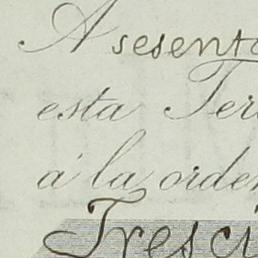 A sesenta
esta Ter
á la orden
Tresci